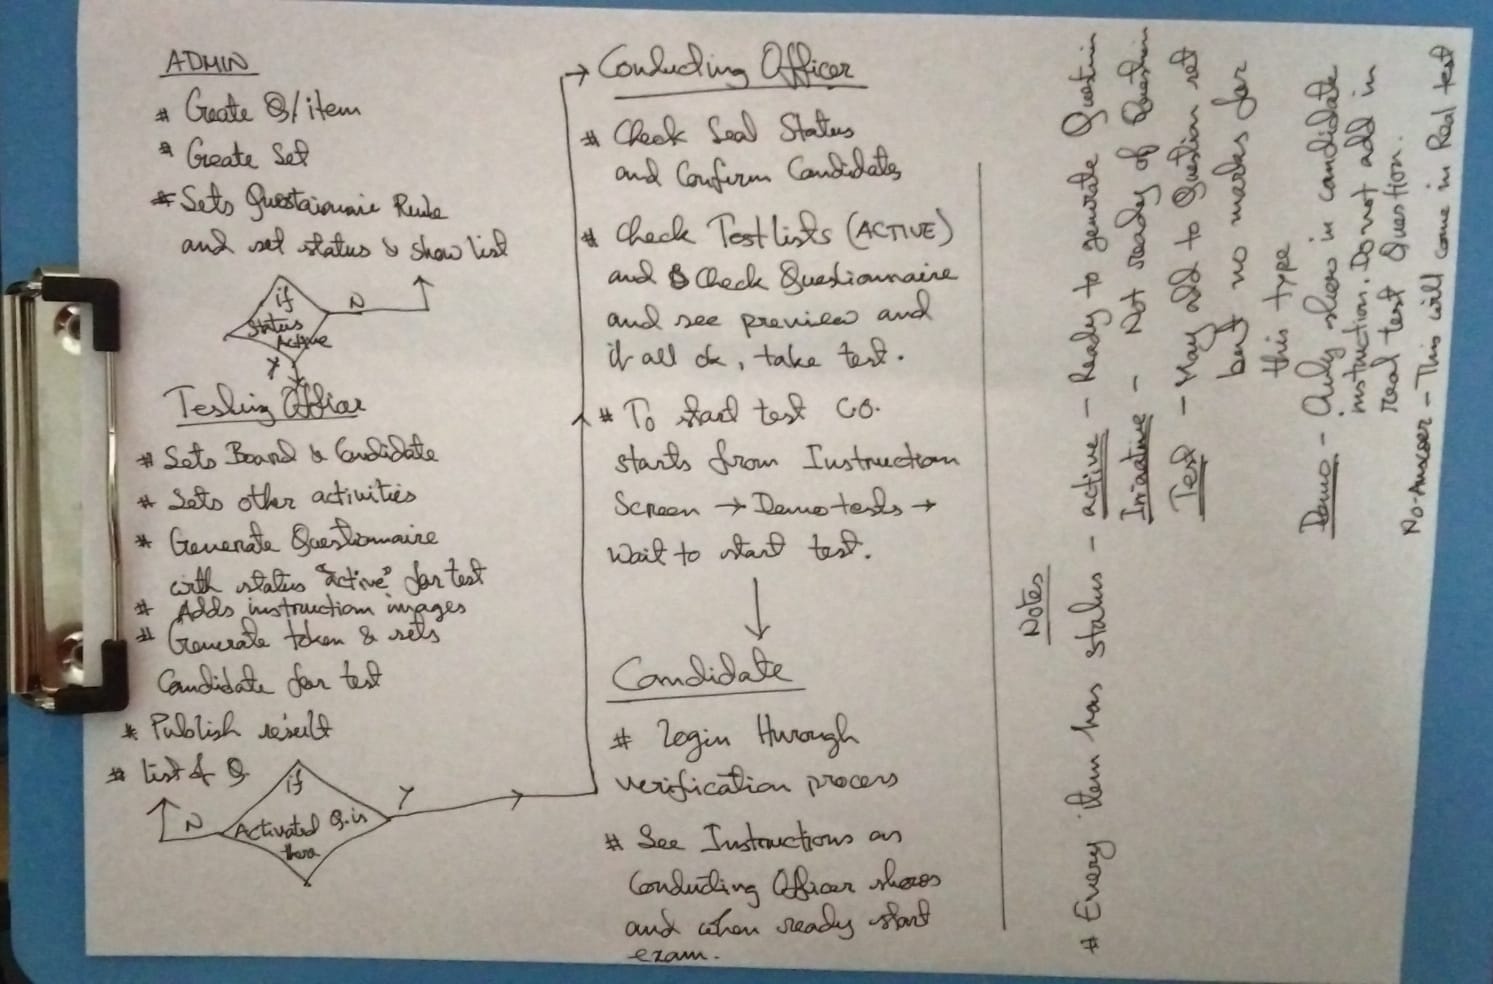 ADMIN
# Create Q/item
# Create Set
# Sets Questainnaie Rule
and set status & show list
if
Status
Active
N
Y
Testing Officer
# Sets Board & Candidate
# Sets other activities
# Generate Questionnaire
with status "active" for test
# Adds instruction images
# Generate token & sets
Candidate for test
# Publish result
# List of Q
if
Activated Q. is
there
N
Y
Conducting Officer
# Check Seal Status
and Confirm Candidates
# Check Testlists (ACTIVE)
and Check Questionnaire
and see preview and
if all ok, take test.
# To start test CO.
starts from Instruction
Screen → Demo tests →
Wait to start test.
Candidate
# Login through
verification process
# See Instructions as
Conducting Officer shows
and when ready start
exam.
Notes
# Every item has status - active - Ready to generate Question
Inactive - Not ready of Question
Test - May add to Question set
but no marks for
this type
Demo - Only show in candidate
instruction. Do not add in
real test Question.
No-Answer - This will come in Real test